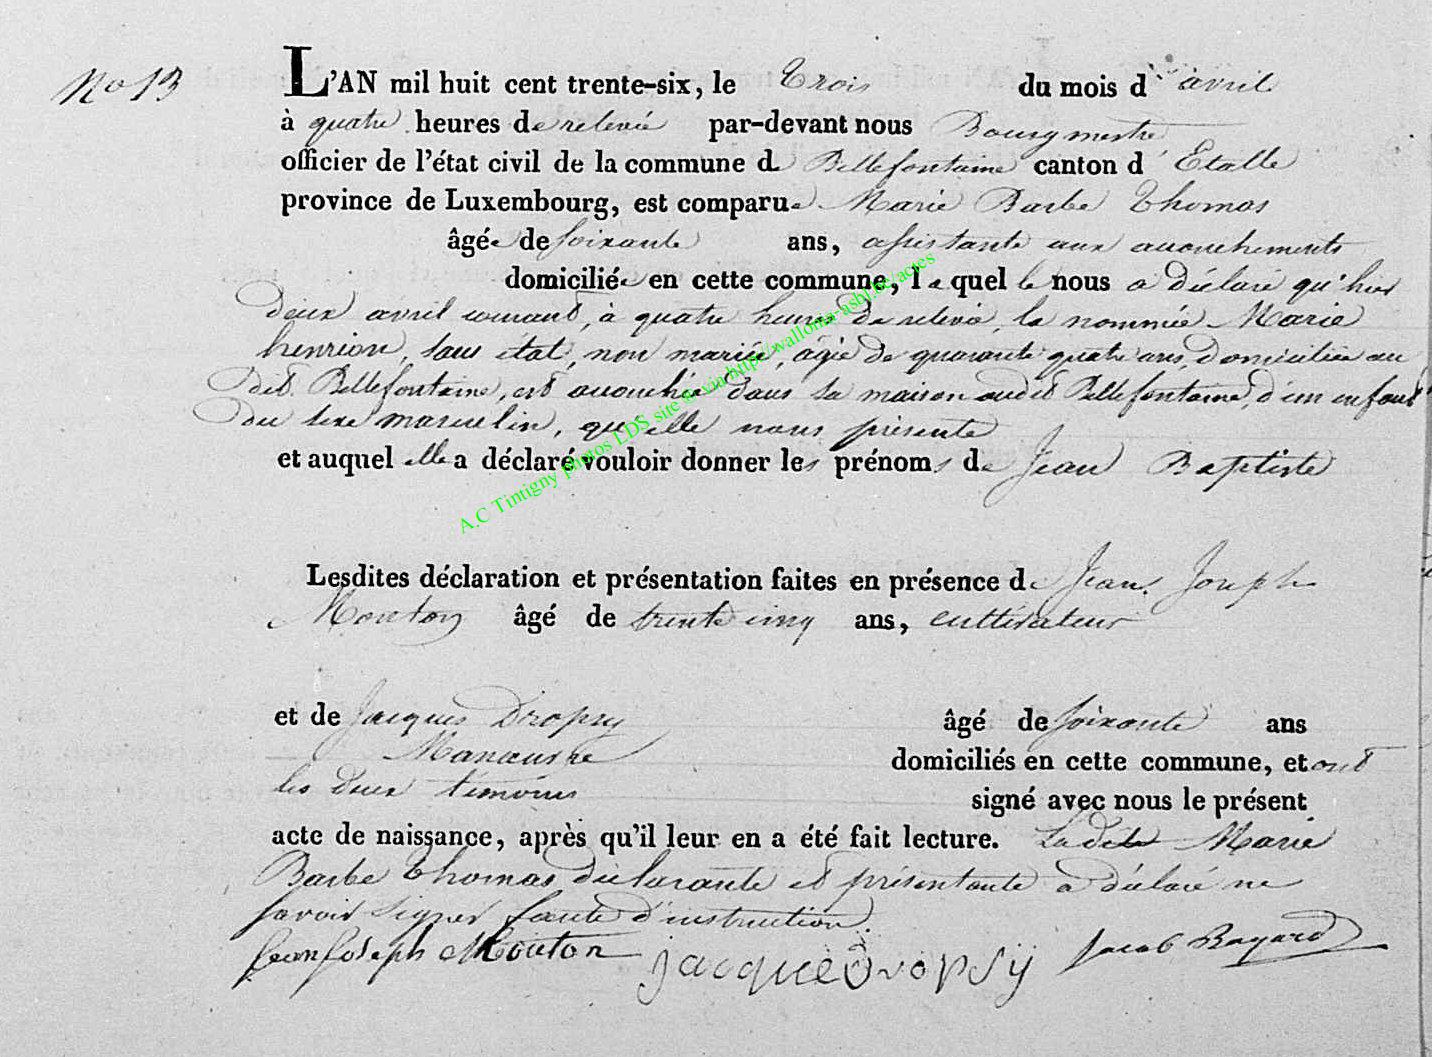 No 13
L'AN mil huit cent trente-six, le Trois du mois d'avril
à quatre heures de relevée par-devant nous Bourgmestre
officier de l'état civil de la commune de Bellefontaine canton d'Etalle
province de Luxembourg, est comparue Marie Barbe Thomas
âgée de soixante ans, assistante aux accouchements
domiciliée en cette commune, laquelle nous a déclaré qu'hier
deux avril courant, à quatre heures de relevée, la nommée Marie
henrion, sans état, non mariée, âgée de quarante quatre ans, domiciliée au
dit Bellefontaine, est accouchée dans sa maison audit Bellefontaine, d'un enfant
du sexe masculin, qu'elle nous présente
et auquel elle a déclaré vouloir donner les prénoms de Jean Baptiste
A.C Tintigny photos LDS site & via http://wallonia-asbl.be/actes
Lesdites déclaration et présentation faites en présence de Jean Joseph
Mouton âgé de trente cinq ans, cultivateur
et de Jacques Dropsy âgé de soixante ans
Manœuvre domiciliés en cette commune, et ont
les deux témoins signé avec nous le présent
acte de naissance, après qu'il leur en a été fait lecture. La dite Marie
Barbe Thomas déclarante et présentante a déclaré ne
savoir signer faute d'instruction.
Jean Joseph Mouton jacque Dropsy Jacob Bayard